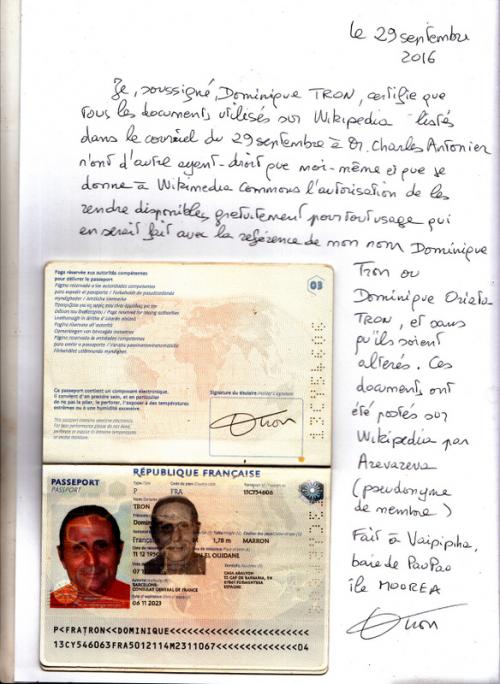 le 29 septembre
2016
Je, soussigné, Dominique TRON, certifie que
tous les documents utilisés sur Wikipedia listés
dans le courriel du 29 septembre à Dr. Charles Antonier
n'ont d'autre ayant-droit que moi-même et que je
donne à Wikimedia Commons l'autorisation de les
rendre disponibles gratuitement pour tout usage qui
en serait fait avec la référence de mon nom Dominique
Tron ou
Dominique Oriata
TRON, et sans
qu'ils soient
altérés. Ces
documents ont
été postés sur
Wikipedia par
Arevareva
(pseudonyme
de membre)
Fait à Vaipipiha,
baie de PaoPao
île MOOREA
Tron
Page réservée aux autorités compétentes
pour délivrer le passeport
03
Ce passeport contient un composant électronique.
Il convient d'en prendre soin, et en particulier
de ne pas le plier, le perforer, l'exposer à des températures
extrêmes ou à une humidité excessive.
Signature du titulaire
Tron
RÉPUBLIQUE FRANÇAISE
PASSEPORT
PASSPORT
P FRA 13CY54606
TRON
Domini
França 1,78 m MARRON
11 12 195
EL OUIDANE
07 1
BARCELONE
CONSULAT GENERAL DE FRANCE
ESPAGNE
06 11 2023
P<FRATRON<<DOMINIQUE<<<<<<<<<<<<<<<<<<<<<<<<
13CY546063FRA5012114M2311067<<<<<<<<<<<<<<04